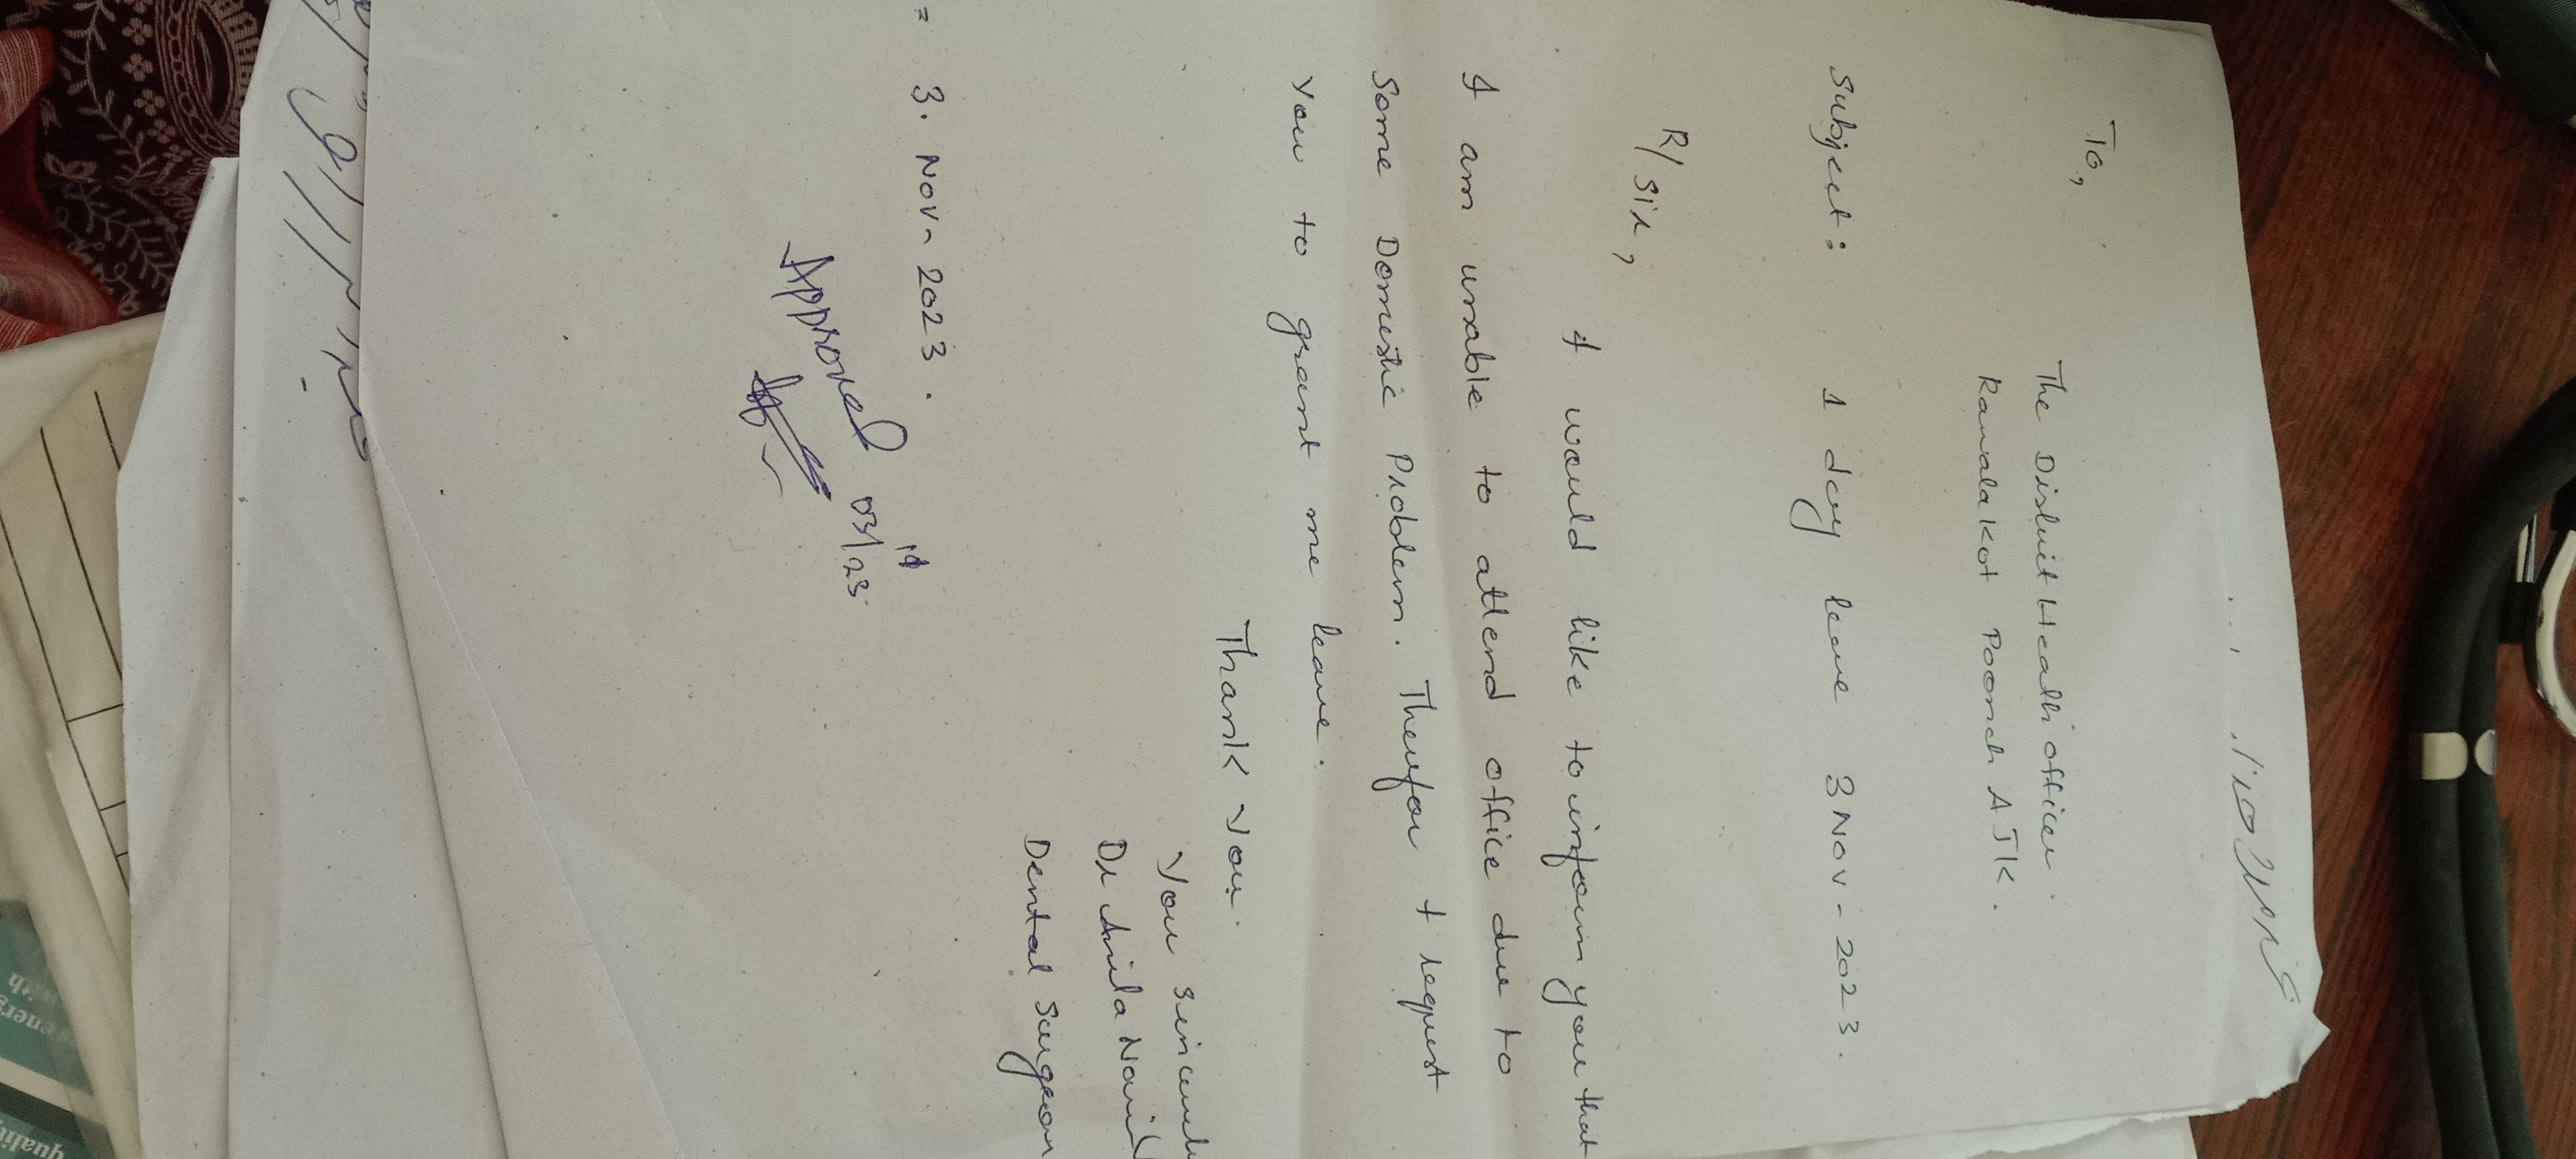 To,
The District Health officer.
Rawalakot Poonch AJK.
Subject: 1 day leave 3 Nov - 2023.
R/Sir,
I would like to inform you that
I am unable to attend office due to
Some Domestic Problem. Therefor I request
you to grant me leave.
Thank You.
Your Sincerely
Dr Anila
Dental Surgeon
3. Nov - 2023.
Approved
03/11/23
quality
with